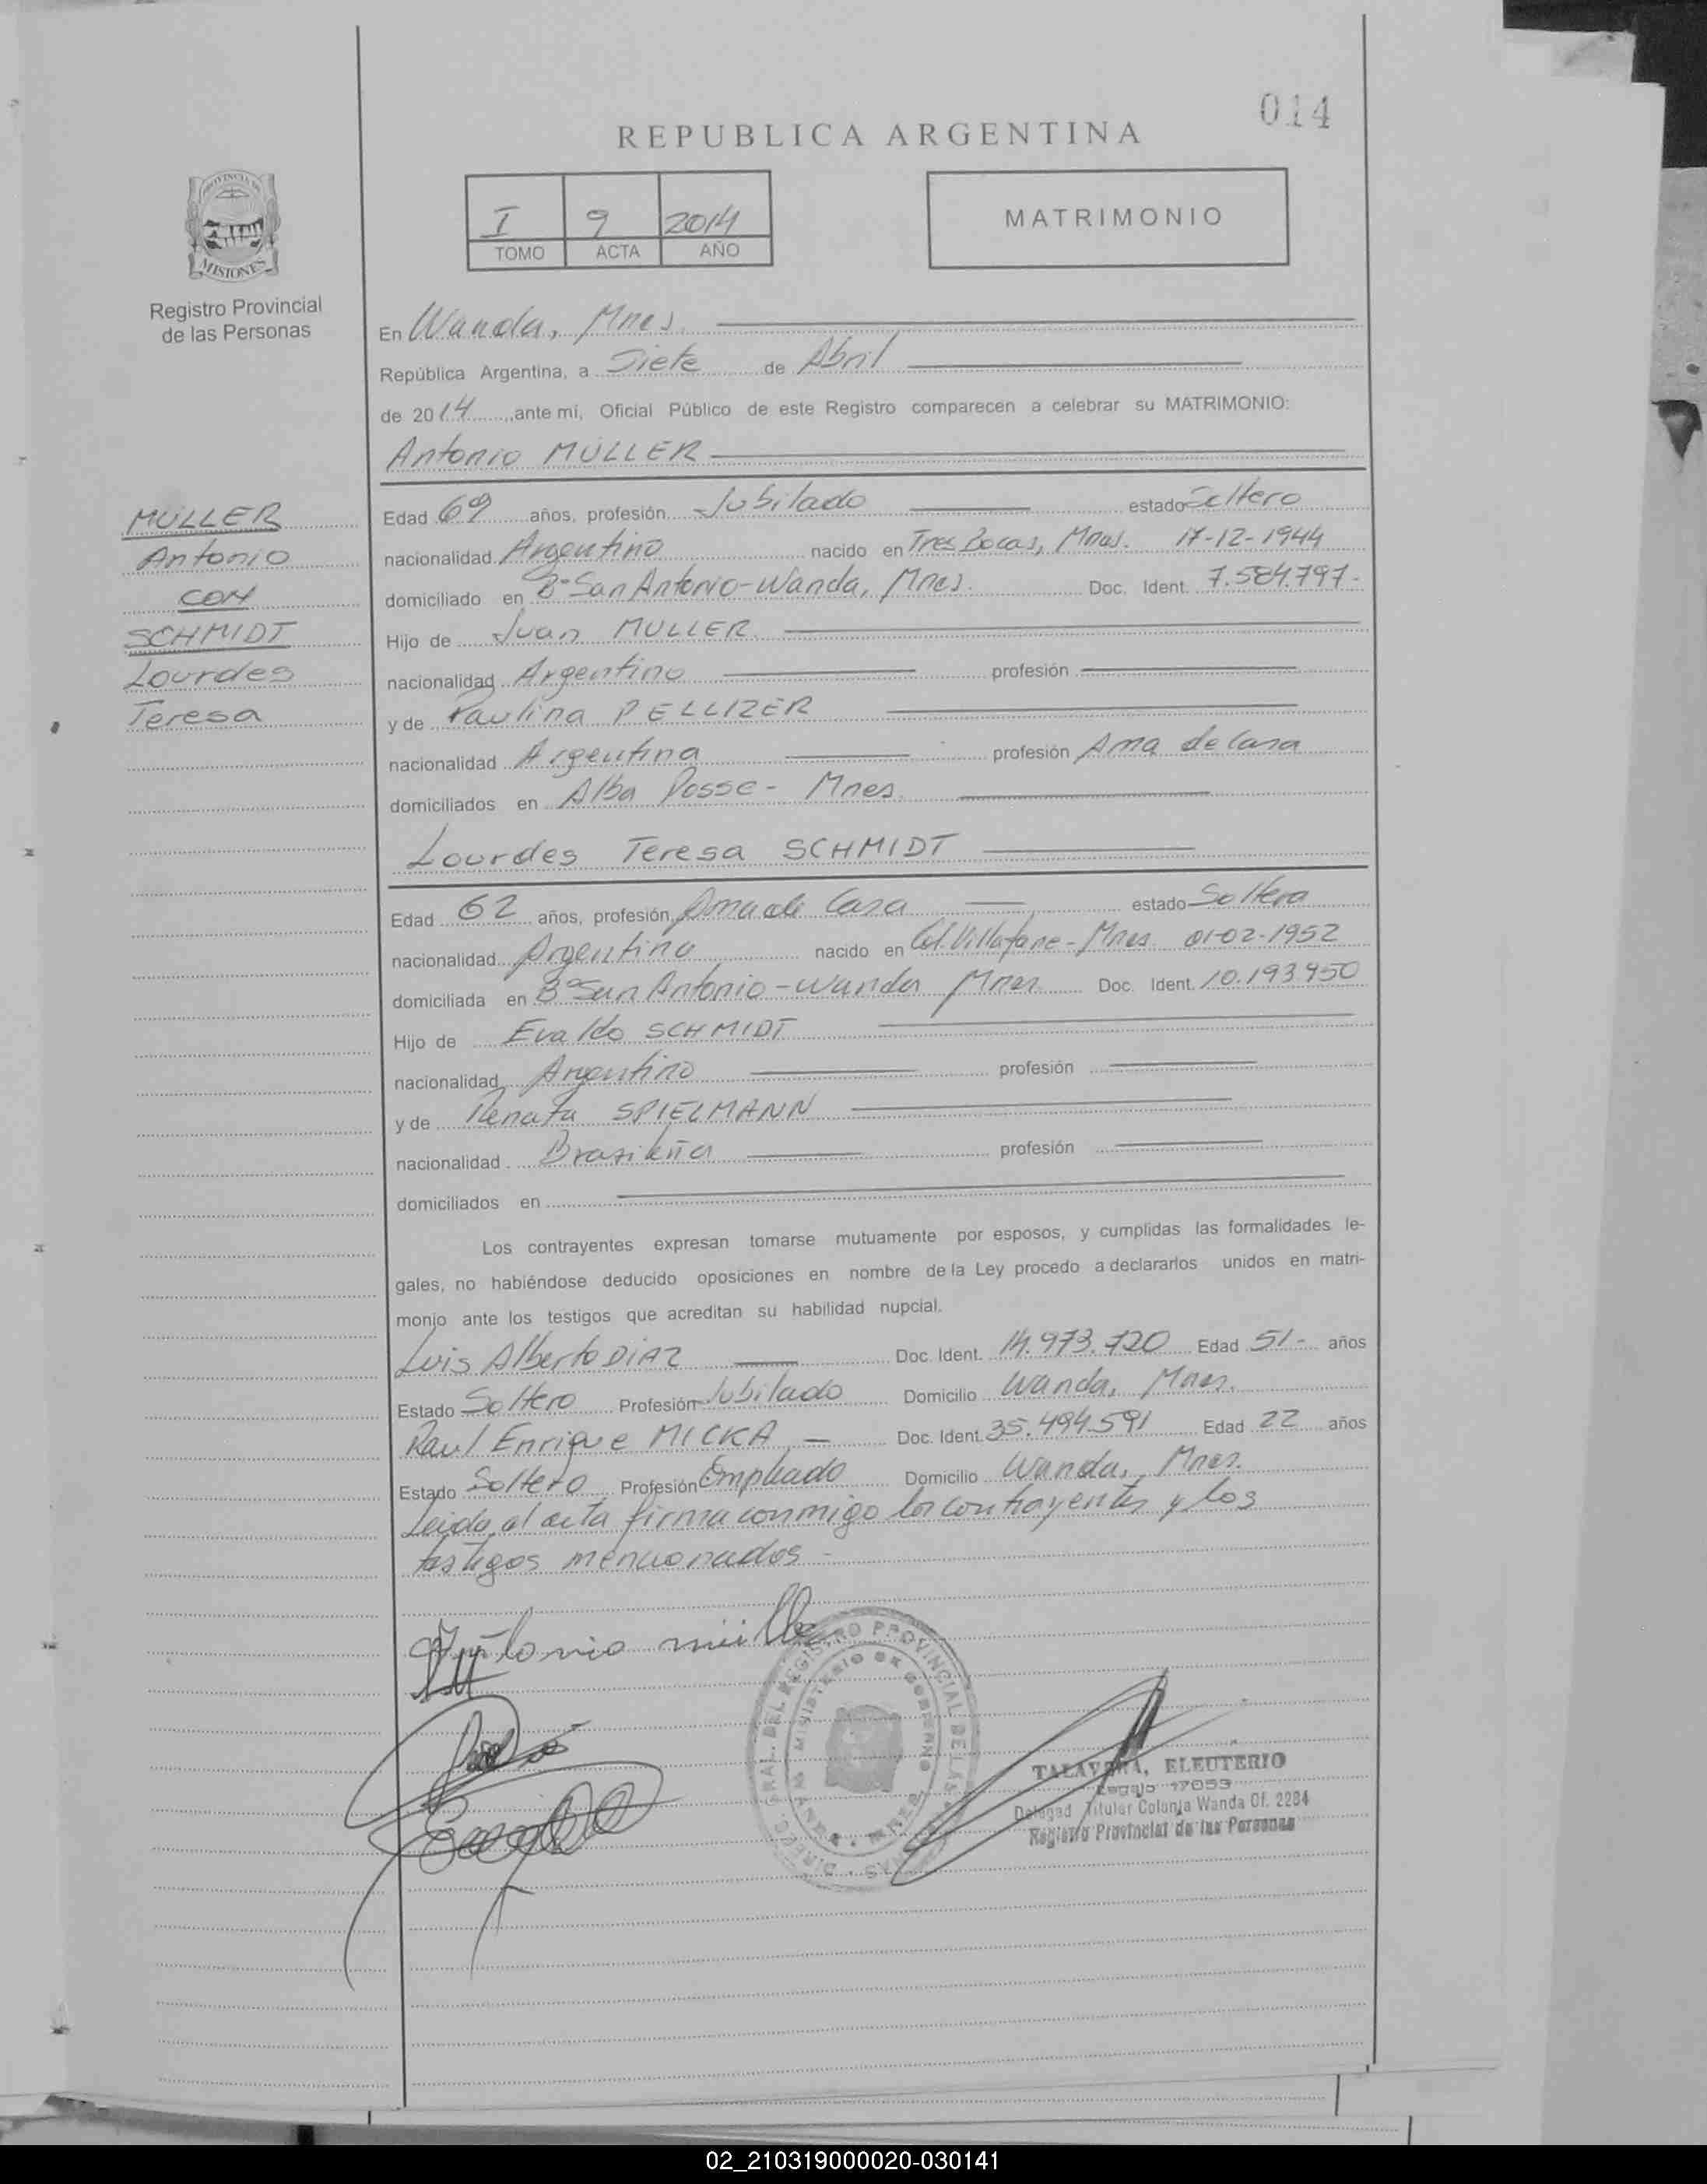 014
REPUBLICA ARGENTINA
I 9 2014
TOMO ACTA AÑO
MATRIMONIO
PROVINCIA DE
MISIONES
Registro Provincial
de las Personas
En Wanda, Mnes.
República Argentina, a Siete de Abril
de 2014, ante mi, Oficial Público de este Registro comparecen a celebrar su MATRIMONIO:
Antonio MÜLLER
MÜLLER
Antonio
CON
SCHMIDT
Lourdes
Teresa
Edad 69 años, profesión Jubilado estado Soltero
nacionalidad Argentino nacido en Tres Bocas, Mnes. 17-12-1944
domiciliado en Bº San Antonio-Wanda, Mnes. Doc. Ident. 7.584.797-
Hijo de Juan MULLER
nacionalidad Argentino profesión
y de Paulina PELLIZER
nacionalidad Argentina profesión Ama de Casa
domiciliados en Alba Posse - Mnes.
Lourdes Teresa SCHMIDT
Edad 62 años, profesión Ama de Casa estado Soltera
nacionalidad Argentina nacido en Col. Villafañe - Mnes. 01-02-1952
domiciliada en Bº San Antonio - Wanda Mnes. Doc. Ident. 10.193.950
Hijo de Evaldo SCHMIDT
nacionalidad Argentino profesión
y de Renata SPIELMANN
nacionalidad Brasileña profesión
domiciliados en
Los contrayentes expresan tomarse mutuamente por esposos, y cumplidas las formalidades le-
gales, no habiéndose deducido oposiciones en nombre de la Ley procedo a declararlos unidos en matri-
monio ante los testigos que acreditan su habilidad nupcial.
Luis Alberto DIAZ Doc. Ident. 14.973.720 Edad 51- años
Estado Soltero Profesión Jubilado Domicilio Wanda, Mnes.
Raul Enrique MICKA - Doc. Ident. 35.494.591 Edad 22 años
Estado Soltero Profesión Empleado Domicilio Wanda, Mnes.
Leida el acta firma conmigo los contrayentes y los
testigos mencionados -
Antonio müller
TALAVERA, ELEUTERIO
Legajo 17053
Delegad Titular Colonia Wanda Of. 2284
Registro Provincial de las Personas
02_210319000020-030141